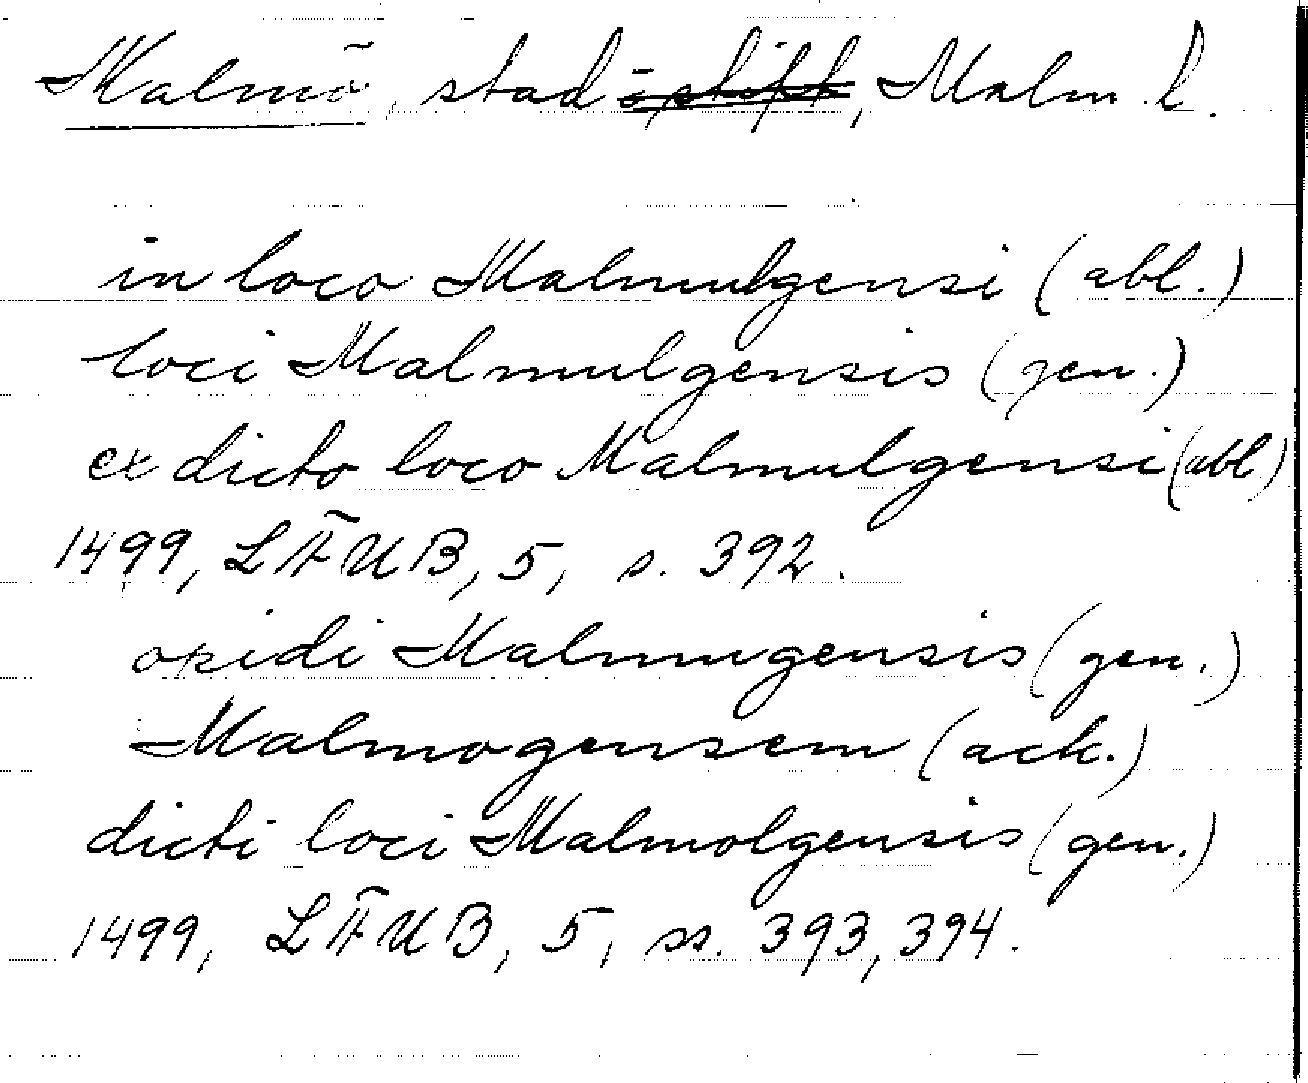 Malmö, stad, Malm. l.
in loco Malmulgensi (abl.)
loci Malmulgensis (gen.)
ex dicto loco Malmulgensi (abl)
1499, LÄUB, 5, s. 392.
opidi Malmugensis (gen.)
Malmogensem (ack.)
dicti loci Malmolgensis (gen.)
1499, LÄUB, 5, ss. 393, 394.